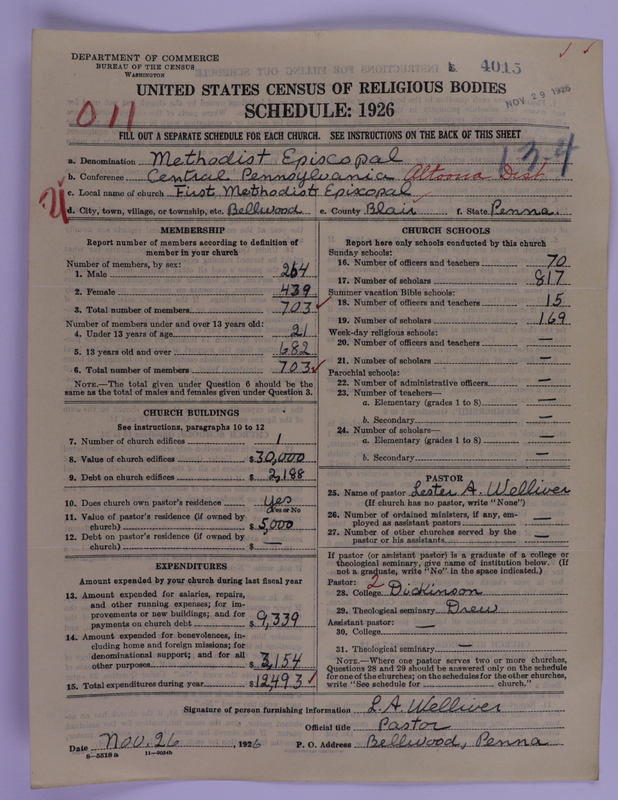 DEPARTMENT OF COMMERCE
BUREAU OF THE CENSUS
WASHINGTON
4015
NOV 29 1926
UNITED STATES CENSUS OF RELIGIOUS BODIES
SCHEDULE: 1926
011
FILL OUT A SEPARATE SCHEDULE FOR EACH CHURCH. SEE INSTRUCTIONS ON THE BACK OF THIS SHEET
13-4
a. Denomination Methodist Episcopal
b. Conference Central Pennsylvania Altoona Dist
c. Local name of church First Methodist Episcopal
d. City, town, village, or township, etc. Bellwood e. County Blair f. State Penna.
MEMBERSHIP
Report number of members according to definition of
member in your church
Number of members, by sex:
1. Male 264
2. Female 439
3. Total number of members 703
Number of members under and over 13 years old:
4. Under 13 years of age 21
5. 13 years old and over 682
6. Total number of members 703
NOTE.—The total given under Question 6 should be
same as the total of males and females given under Question 3.
CHURCH BUILDINGS
See instructions, paragraphs 10 to 12
7. Number of church edifices 1
8. Value of church edifices $30,000
9. Debt on church edifices $2,188
10. Does church own pastor's residence yes
Yes or No
11. Value of pastor's residence (if owned by
church) $5,000
12. Debt on pastor's residence (if owned by
church) $ —
EXPENDITURES
Amount expended by your church during last fiscal year
13. Amount expended for salaries, repairs,
and other running expenses; for im-
provements or new buildings; and for
payments on church debt $9,339
14. Amount expended for benevolences, in-
cluding home and foreign missions; for
denominational support; and for all
other purposes $3,154
15. Total expenditures during year $12493
CHURCH SCHOOLS
Report here only schools conducted by this church
Sunday schools:
16. Number of officers and teachers 70
17. Number of scholars 817
Summer vacation Bible schools:
18. Number of officers and teachers 15
19. Number of scholars 169
Week-day religious schools:
20. Number of officers and teachers —
21. Number of scholars —
Parochial schools:
22. Number of administrative officers —
23. Number of teachers—
a. Elementary (grades 1 to 8) —
b. Secondary —
24. Number of scholars—
a. Elementary (grades 1 to 8) —
b. Secondary —
PASTOR
25. Name of pastor Lester A. Welliver
(If church has no pastor, write "None")
26. Number of ordained ministers, if any, em-
ployed as assistant pastors —
27. Number of other churches served by the
pastor or his assistants —
If pastor (or assistant pastor) is a graduate of a college or
theological seminary, give name of institution below. (If
not a graduate, write "No" in the space indicated.)
Pastor: 2
28. College Dickinson
29. Theological seminary Drew
Assistant pastor: —
30. College
31. Theological seminary —
NOTE.—Where one pastor serves two or more churches,
Questions 28 and 29 should be answered only on the schedule
for one of the churches; on the schedules for the other churches,
write "See schedule for church."
Signature of person furnishing information L. A. Welliver
Official title Pastor
Date Nov. 26, 1926 P. O. Address Bellwood, Penna
8—5518 b 11—9034b